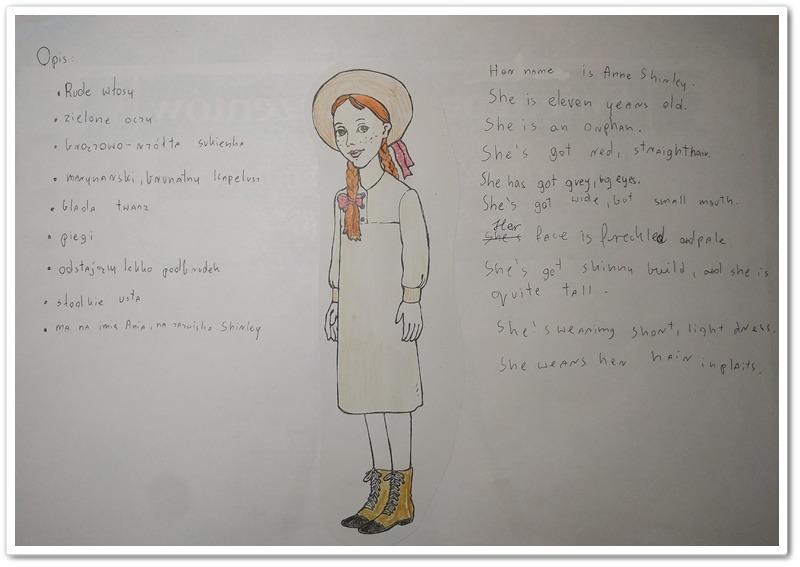 Opis:
• Rude włosy
• zielone oczy
• brązowo-żółta sukienka
• marynarski, brunatny kapelusz
• blada twarz
• piegi
• odstający lekko podbrudek
• słodkie usta
• ma na imię Ania, na nazwisko Shirley
Her name is Anne Shirley.
She is eleven years old.
She is an orphan.
She's got red, straight hair.
She has got grey, big eyes.
She's got wide, but small mouth.
Her
She's face is freckled and pale
She's got skinny build, and she is
quite tall.
She's wearing short, light dress.
She wears her hair in plaits.